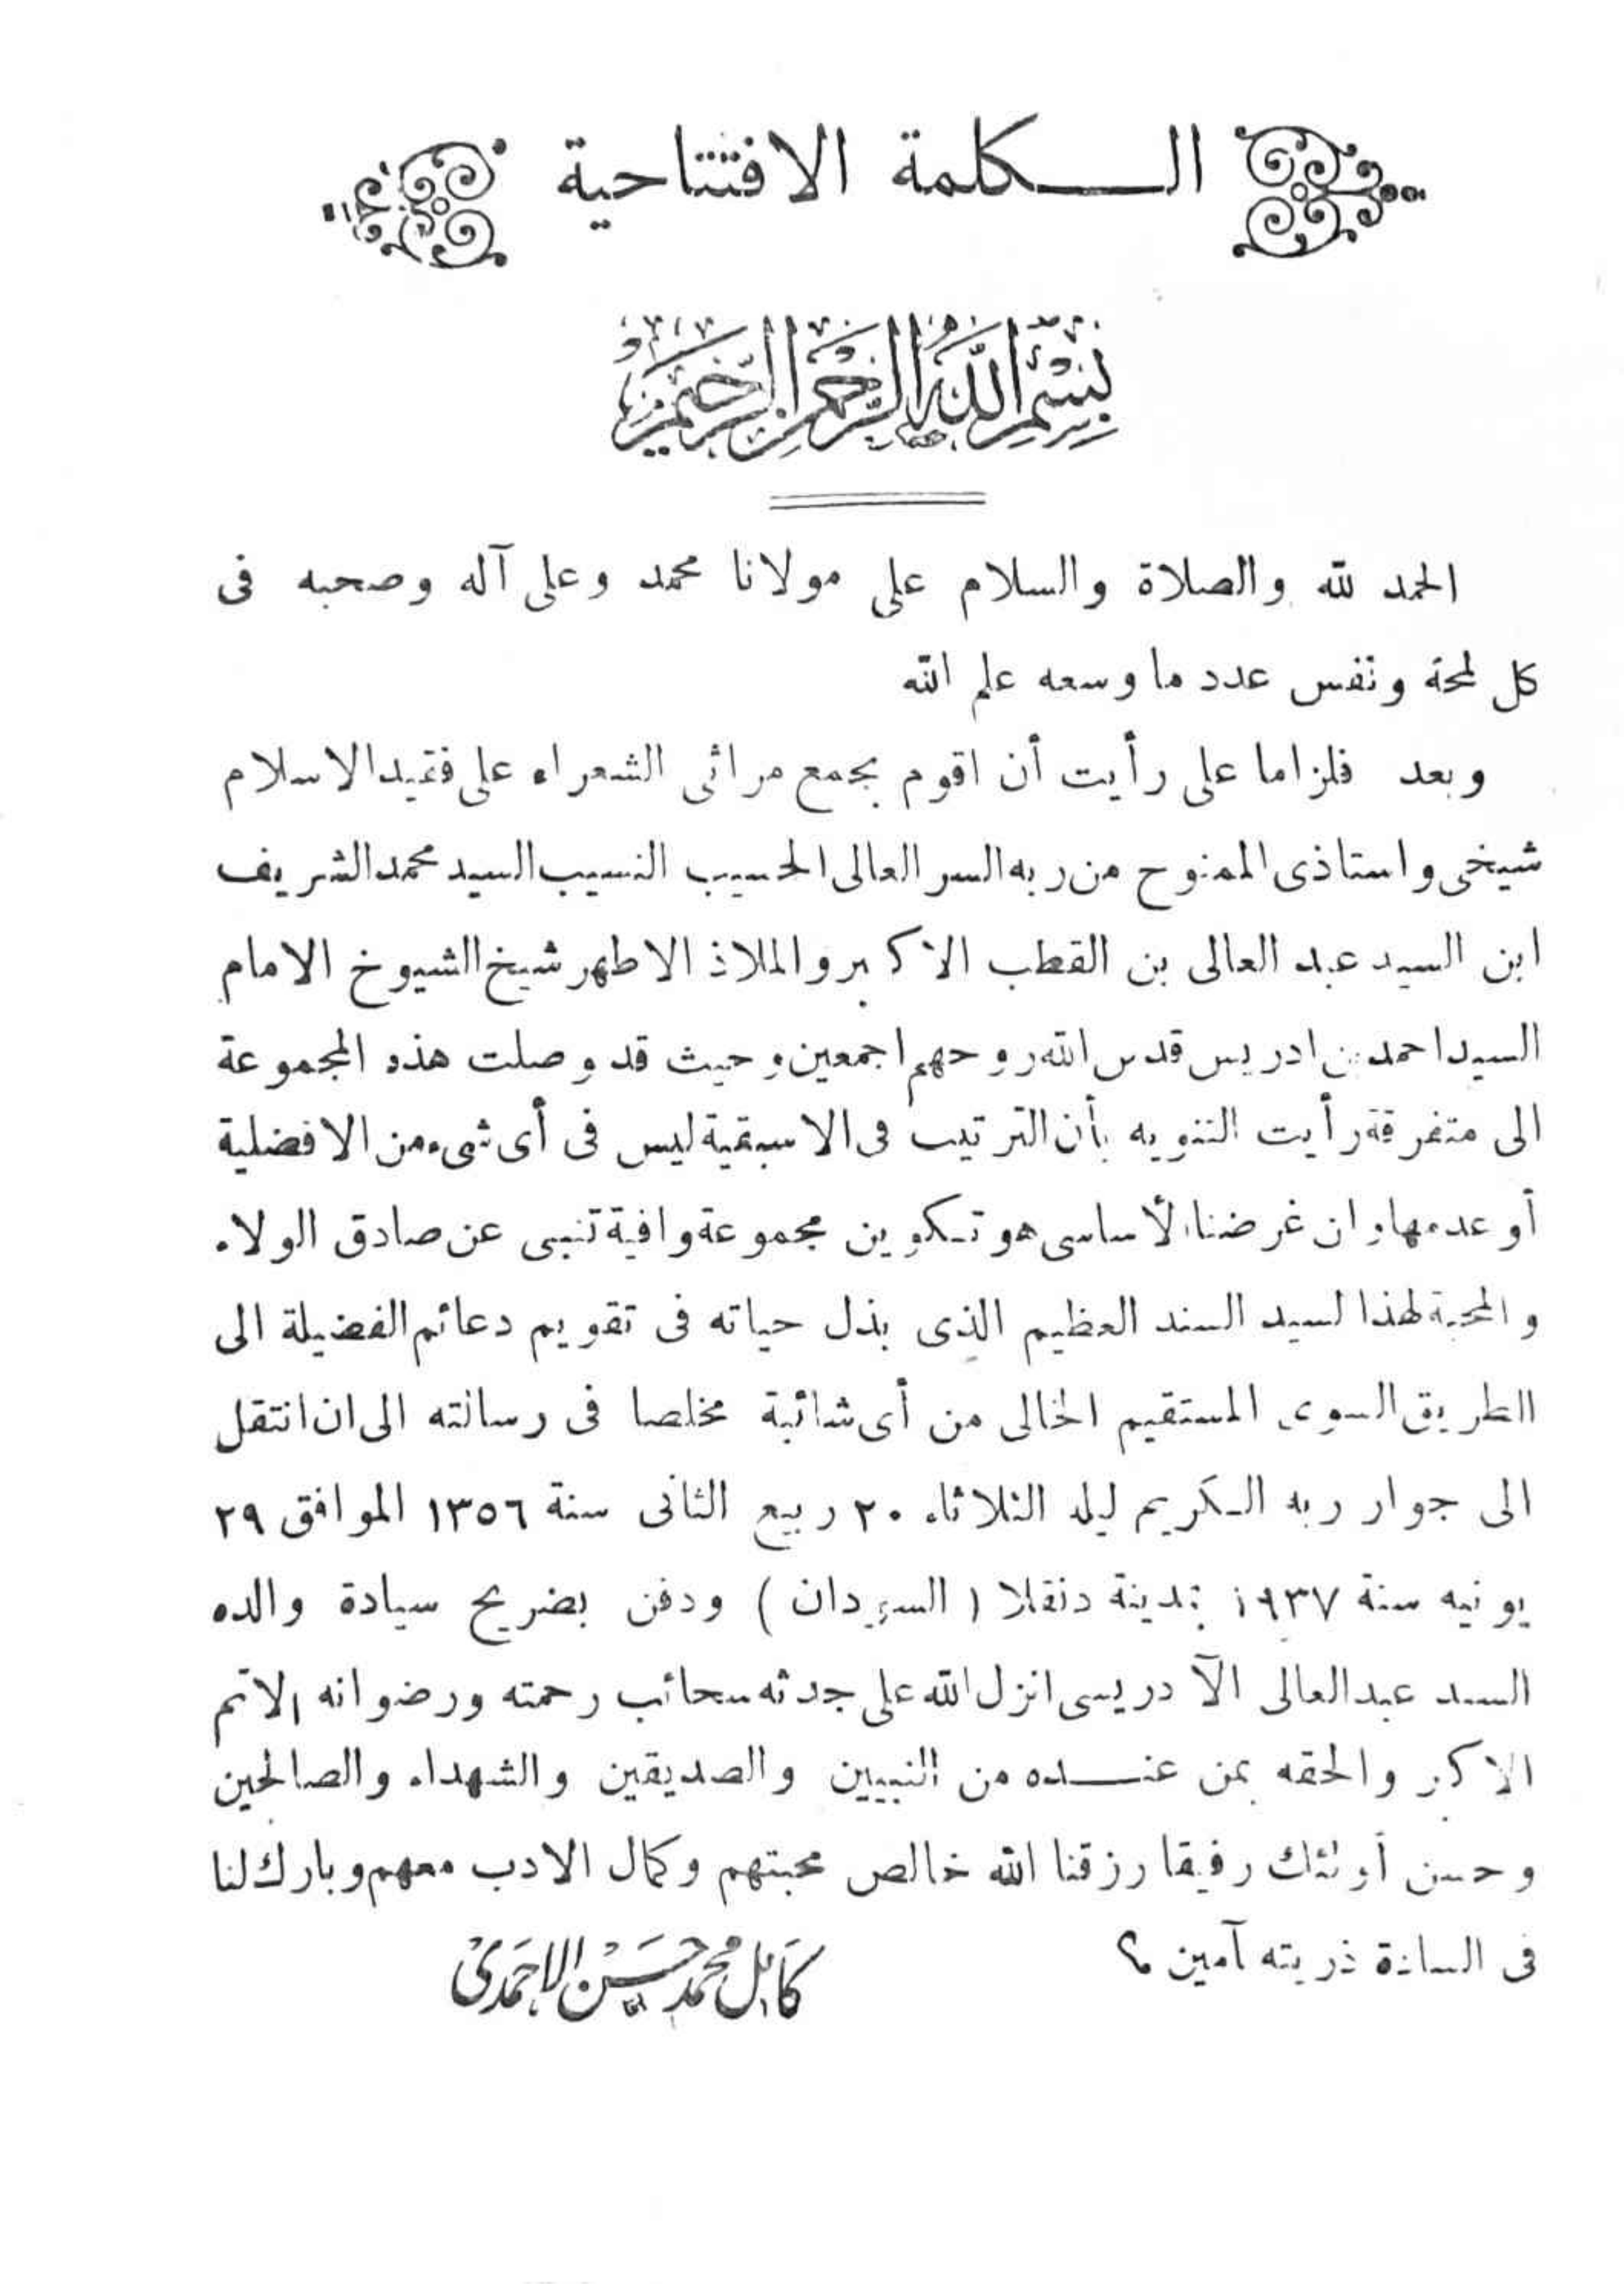 الكلمة الافتتاحية
بسم الله الرحمن الرحيم
الحمد لله والصلاة والسلام على مولانا محمد وعلى آله وصحبه فى
كل لمحة ونفس عدد ما وسعه علم الله
وبعد فلزاما على رأيت أن اقوم بجمع مراثى الشعراء على فقيد الاسلام
شيخى واستاذى الممنوح من ربه السر العالى الحسيب النسيب السيد محمد الشريف
ابن السيد عبد العالى بن القطب الاكبر والملاذ الاطهر شيخ الشيوخ الامام
السيد احمد بن ادريس قدس الله روحهم اجمعين وحيث قد وصلت هذه المجموعة
الى متفرقة رأيت التنويه بأن الترتيب فى الاسبقية ليس فى أى شىء من الافضلية
أو عدمها وان غرضنا الأساسى هو تكوين مجموعة وافية تنبى عن صادق الولاء
والمحبة لهذا لسيد السند العظيم الذى بذل حياته فى تقويم دعائم الفضيلة الى
الطريق السوى المستقيم الخالى من أى شائبة مخلصا فى رسالته الى ان انتقل
الى جوار ربه الكريم ليلة الثلاثاء ٢٠ ربيع الثانى سنة ١٣٥٦ الموافق ٢٩
يونيه سنة ١٩٣٧ بمدينة دنقلا ( السودان ) ودفن بضريح سيادة والده
السيد عبد العالى الآدريسى انزل الله على جدثه سحائب رحمته ورضوانه الاتم
الاكبر والحقه بمن عنده من النبيين والصديقين والشهداء والصالحين
وحسن أولئك رفيقا رزقنا الله خالص محبتهم وكمال الادب معهم وبارك لنا
فى السادة ذريته آمين ؟
كامل محمد حسن الاحمدى